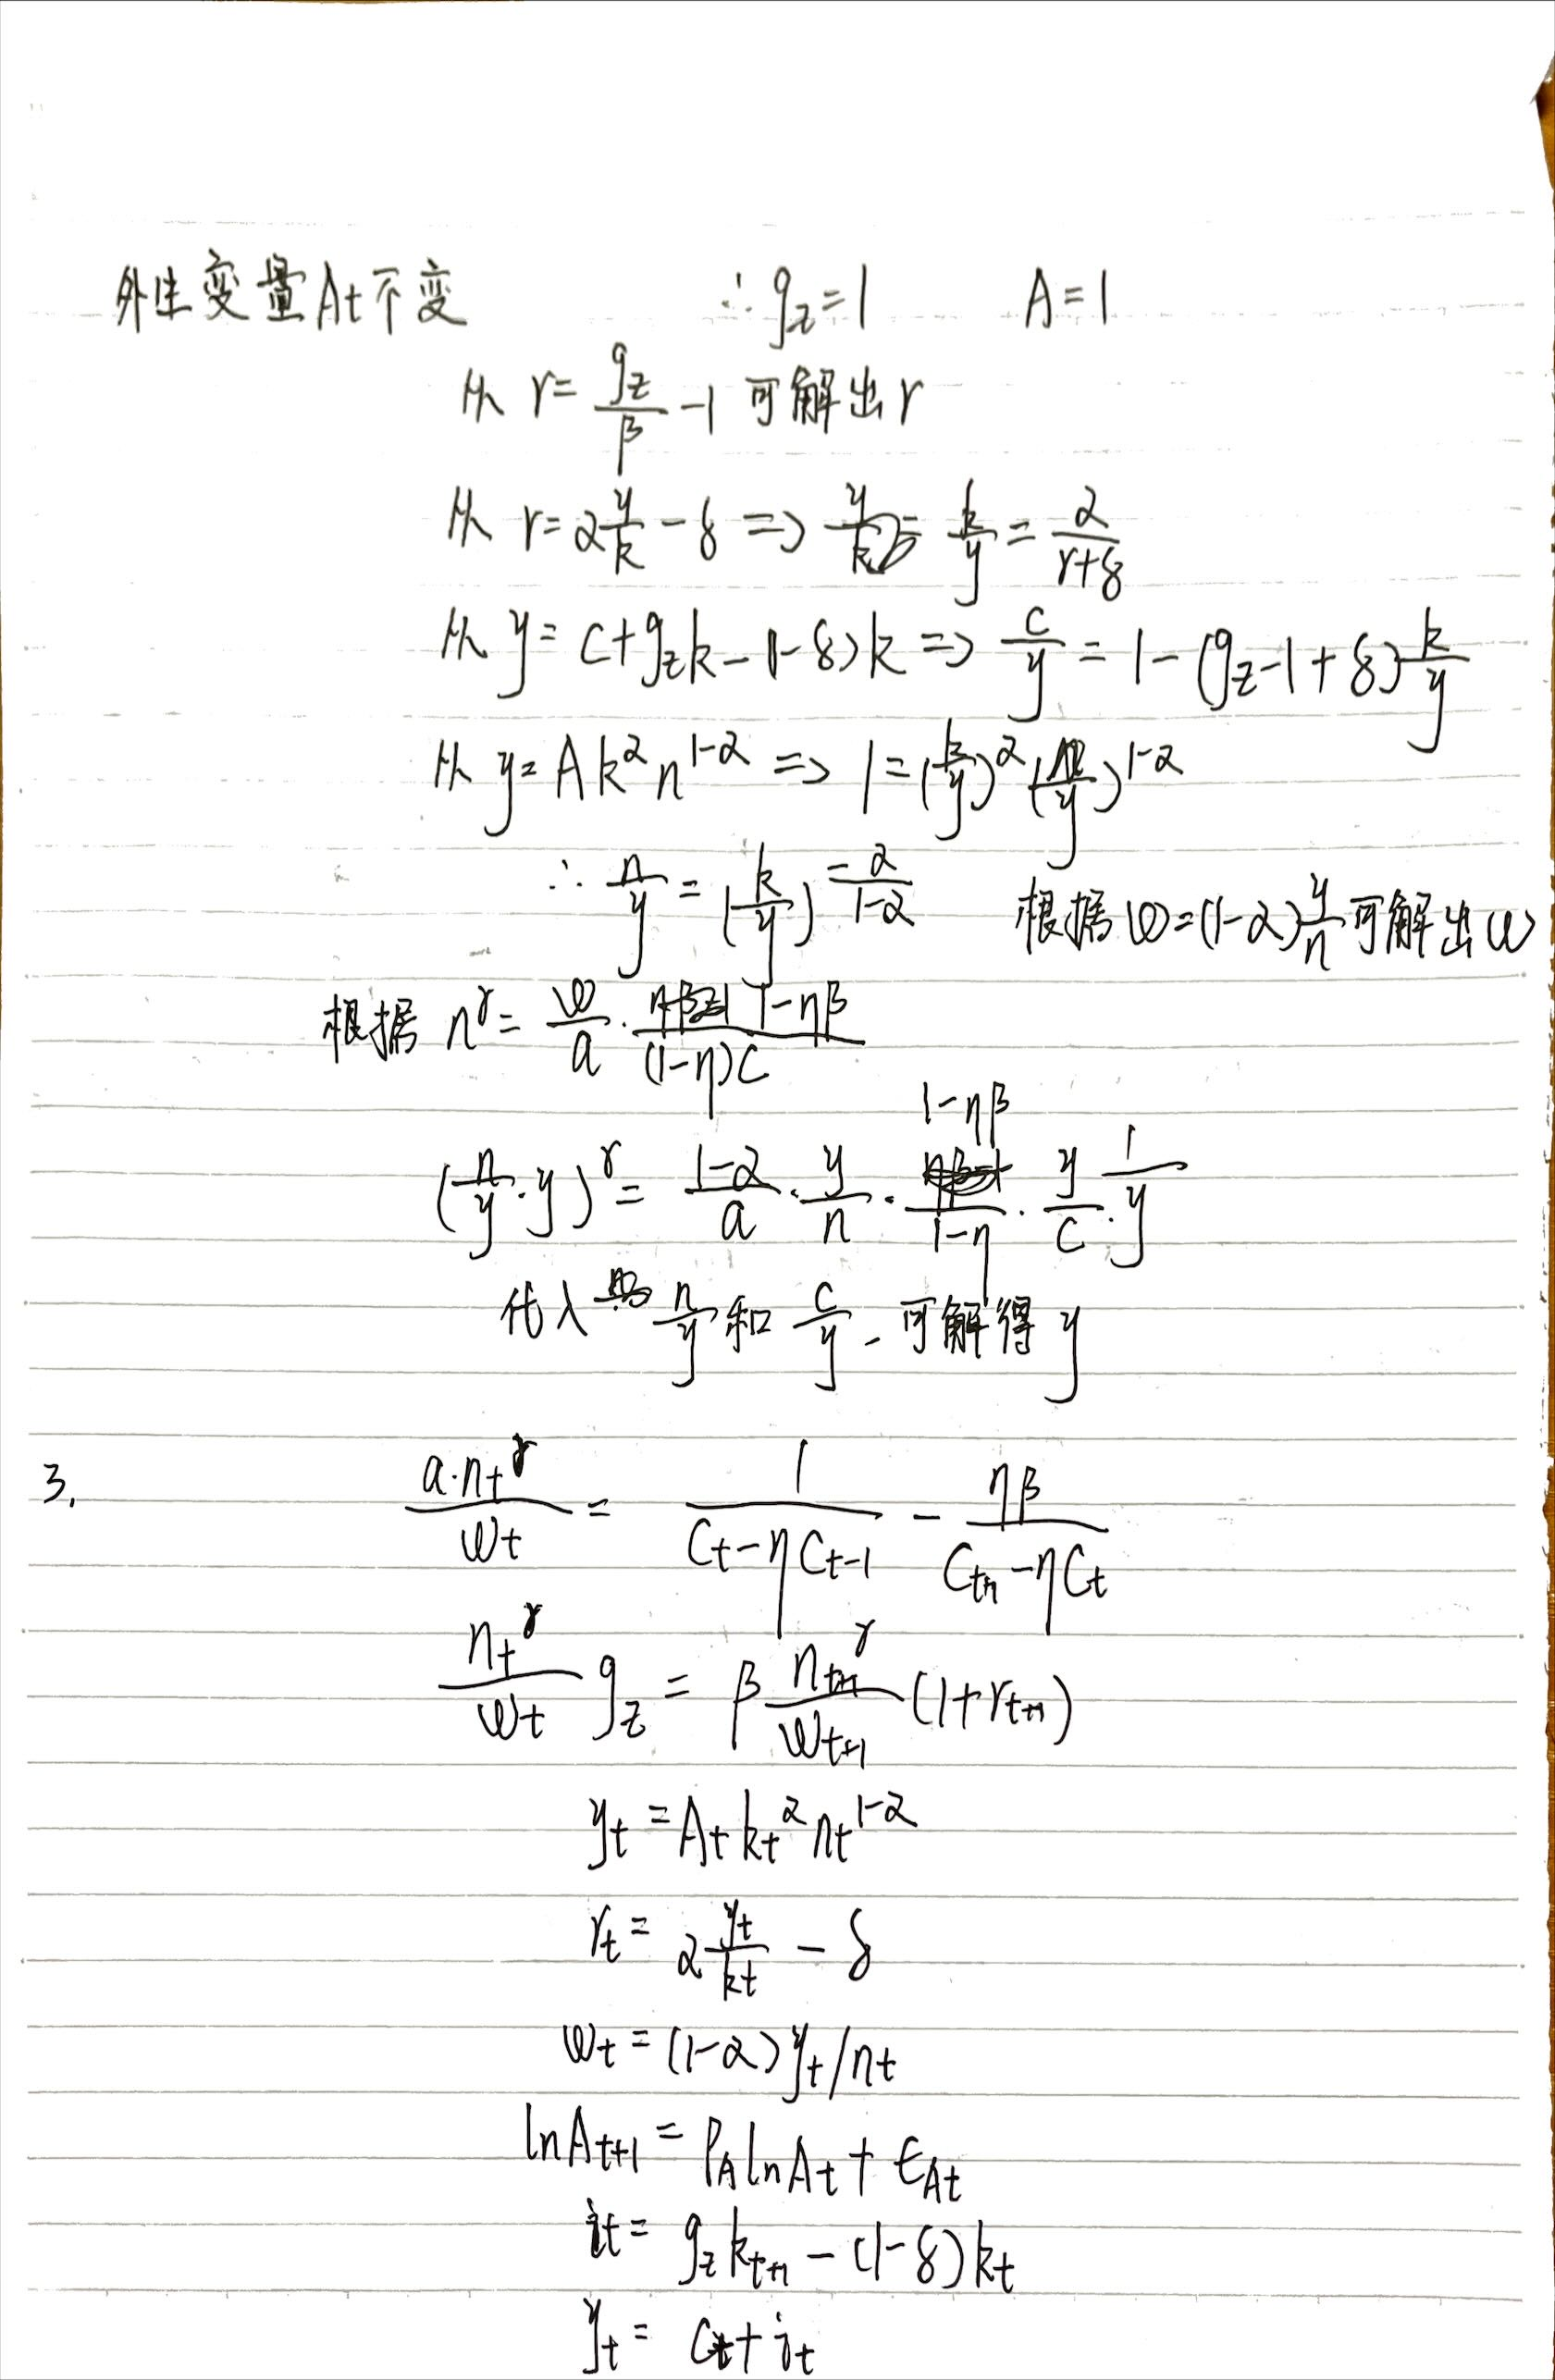 外生变量At不变 ∴ g_z=1 A=1
从 r = g_z/β - 1 可解出r
从 r = α y/k - δ => k/y = α/(r+δ)
从 y = c+g_z k-(1-δ)k => c/y = 1-(g_z-1+δ) k/y
从 y = A k^α n^(1-α) => 1 = (k/y)^α (n/y)^(1-α)
∴ n/y = (k/y)^(-α/(1-α)) 根据 w=(1-α) y/n 可解出w
根据 n^γ = w/a · (1-ηβ)/((1-η)c)
(n/y · y)^γ = (1-α)/a · y/n · (1-ηβ)/(1-η) · y/c · 1/y
代入 n/y 和 c/y, 可解得 y
3. a·n_t^γ/w_t = 1/(c_t-ηc_{t-1}) - ηβ/(c_{t+1}-ηc_t)
n_t^γ/w_t g_z = β n_{t+1}^γ/w_{t+1} (1+r_{t+1})
y_t = A_t k_t^α n_t^(1-α)
r_t = α y_t/k_t - δ
w_t = (1-α)y_t/n_t
lnA_{t+1} = ρ_A lnA_t + ε_{At}
i_t = g_z k_{t+1} - (1-δ)k_t
y_t = c_t + i_t